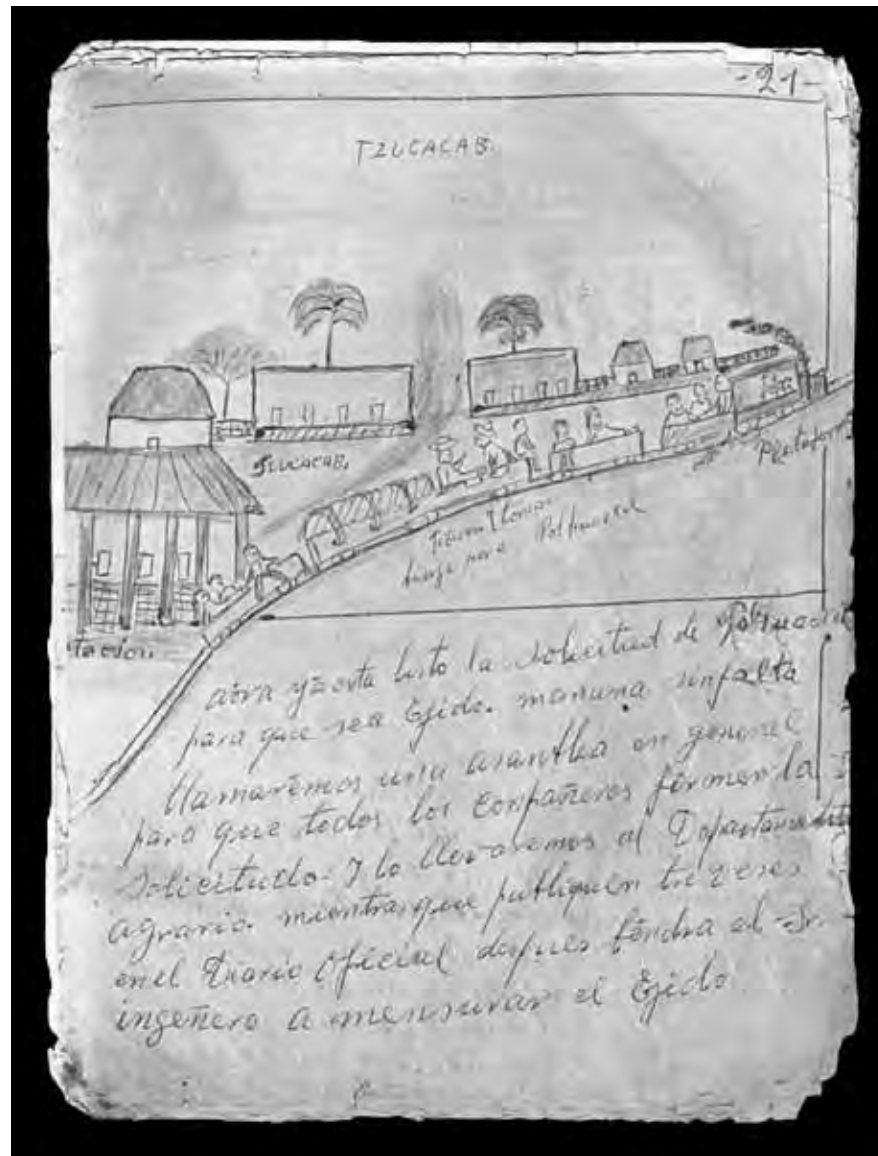 -21-
TZUCACAB.
TZUCACAB.
Plataform
para
tacion.
aora ya esta listo la solicitud de
para que sea Ejido. manuna sinfalta
llamaremos una asantlea en general
para que todos los conpañeros firmen la
Solicitudlo. Y lo llevaremos al Departamento
agrario. mientras que publiquen tre veses
en el Diario Oficial despues bendra el Sr.
ingeñero a mensurar el Ejido